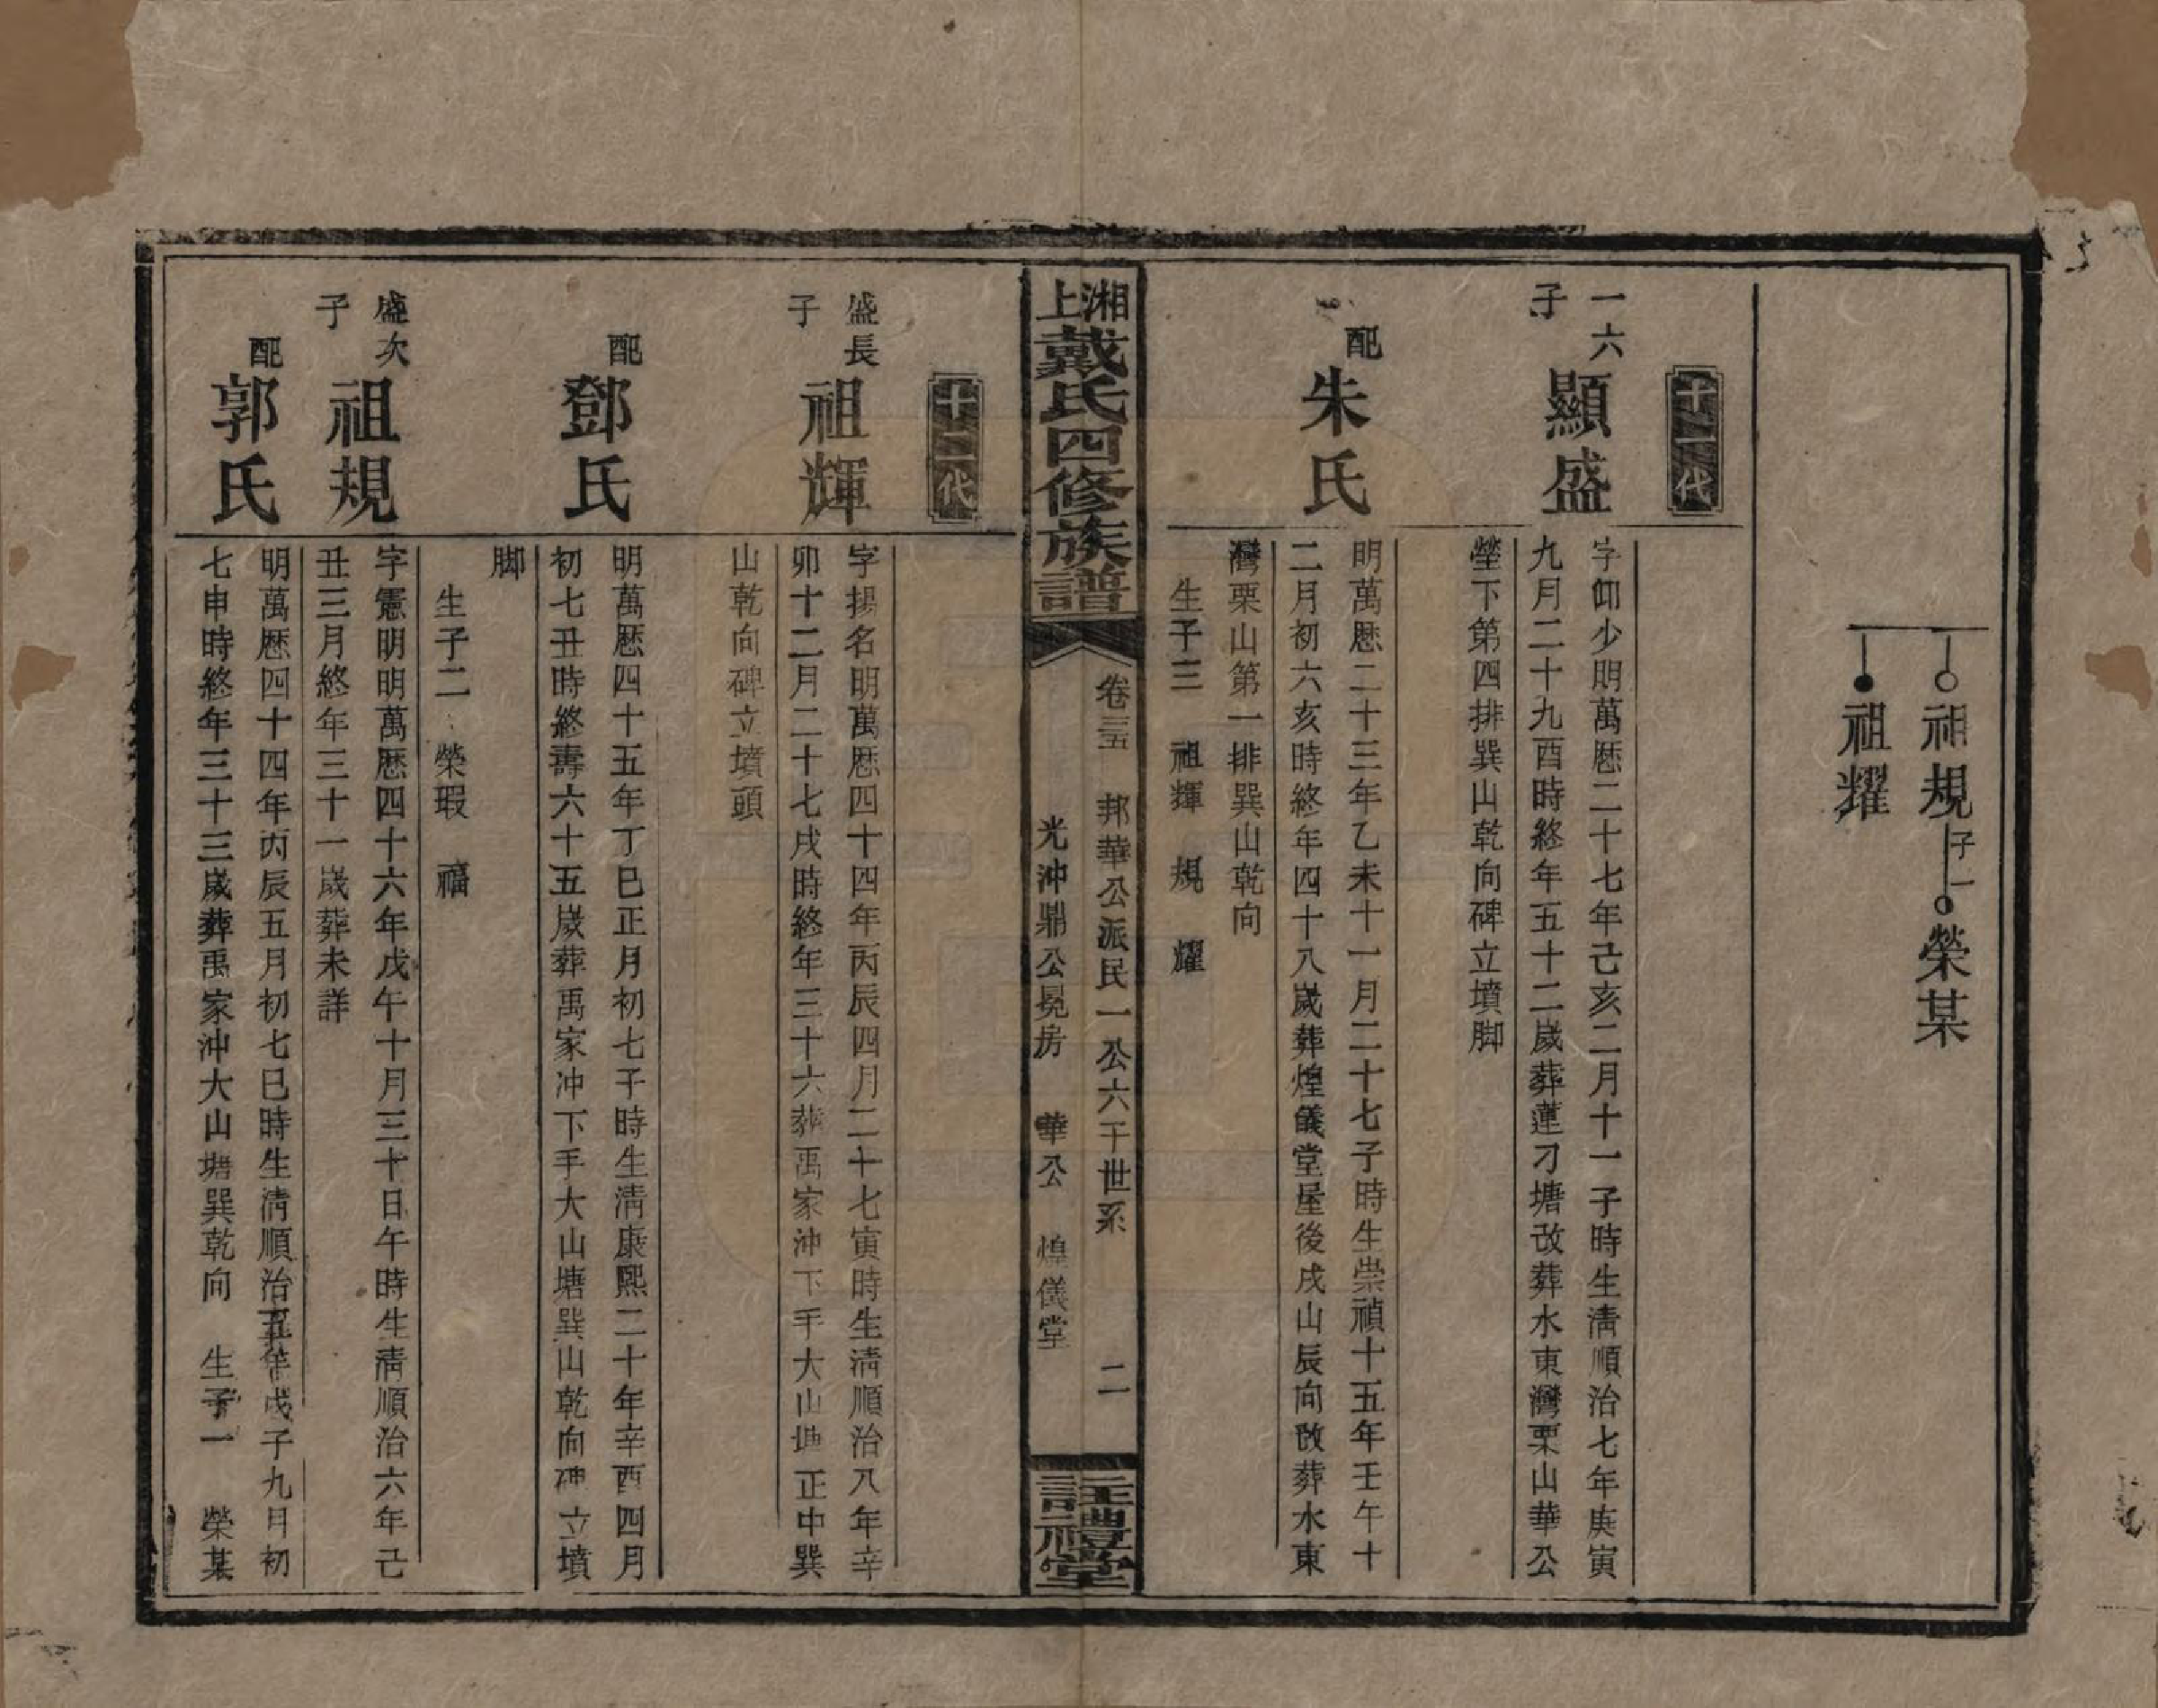 祖規 子一 榮某
祖耀
十一代
一六子 顯盛
字仰少明萬歷二十七年己亥二月十一子時生淸順治七年庚寅
九月二十九酉時終年五十二歲葬蓮刀塘改葬水東灣栗山華公
塋下第四排巽山乾向碑立墳脚
配 朱氏
明萬歷二十三年乙未十一月二十七子時生崇禎十五年壬午十
二月初六亥時終年四十八歲葬煌儀堂屋後戌山辰向改葬水東
灣栗山第一排巽山乾向
生子三 祖輝 規 耀
湘上戴氏四修族譜
卷三五 邦華公派民一公六干世系 二
光沖鼎公晃房 華公 煌儀堂
註禮堂
十二代
盛長子 祖輝
字揚名明萬歷四十四年丙辰四月二十七寅時生淸順治八年辛
卯十二月二十七戌時終年三十六葬禹家沖下手大山塘正中巽
山乾向碑立墳頭
配 鄧氏
明萬歷四十五年丁巳正月初七子時生淸康熙二十年辛酉四月
初七丑時終壽六十五歲葬禹家沖下手大山塘巽山乾向碑立墳
脚
生子二 榮瑕 福
盛次子 祖規
字憲明明萬歷四十六年戊午十月三十日午時生淸順治六年己
丑三月終年三十一歲葬未詳
配 郭氏
明萬歷四十四年丙辰五月初七巳時生淸順治五年戊子九月初
七申時終年三十三歲葬禹家沖大山塘巽乾向 生子一 榮某